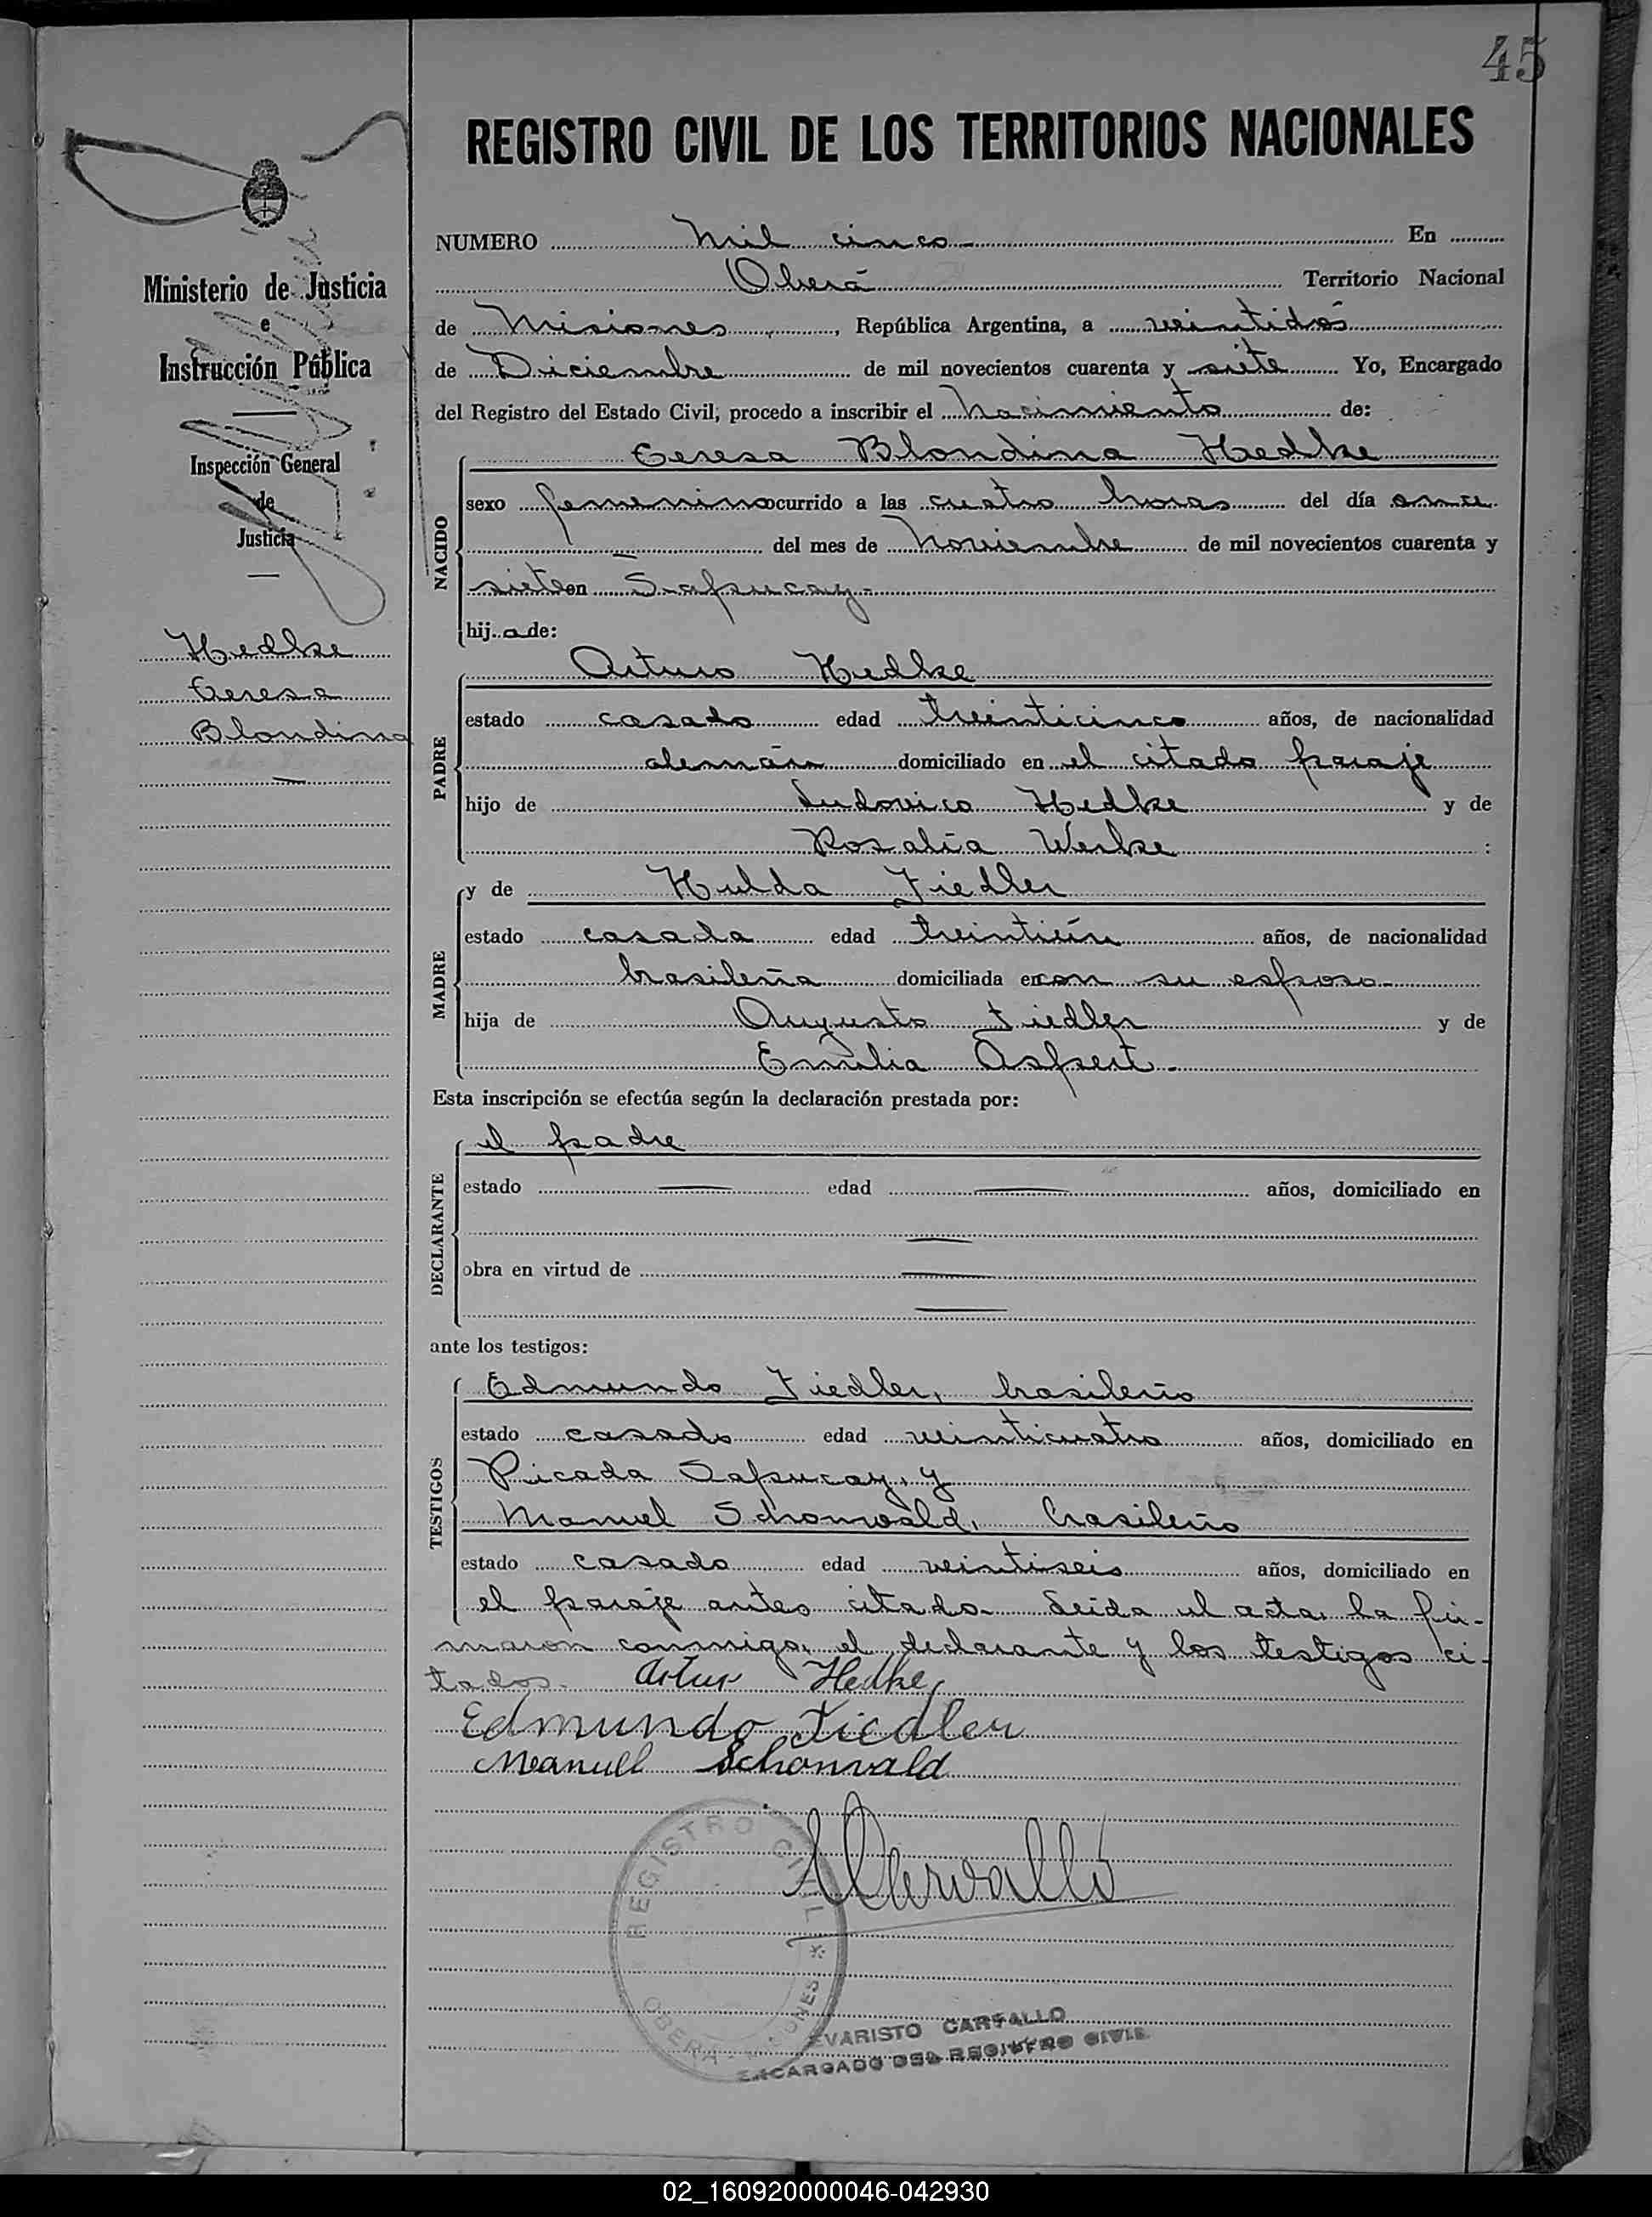 45
REGISTRO CIVIL DE LOS TERRITORIOS NACIONALES
Ministerio de Justicia
e
Instrucción Pública
Inspección General
de
Justicia
Hedke
Teresa
Blondina
NUMERO Mil cinco - En
Oberá Territorio Nacional
de Misiones, República Argentina, a veintidós
de Diciembre de mil novecientos cuarenta y siete Yo, Encargado
del Registro del Estado Civil, procedo a inscribir el Nacimiento de:
NACIDO
Teresa Blondina Hedke
sexo femenino ocurrido a las cuatro horas del día once
del mes de Noviembre de mil novecientos cuarenta y
siete en Sapucay.-
hij a de:
PADRE
Arturo Hedke
estado casado edad treinticinco años, de nacionalidad
alemán domiciliado en el citado paraje
hijo de Ludovico Hedke y de
Rosalía Werke :
MADRE
y de Hulda Fiedler
estado casada edad treintiún años, de nacionalidad
brasileña domiciliada en con su esposo.-
hija de Augusto Fiedler y de
Emilia Aspert.-
Esta inscripción se efectúa según la declaración prestada por:
DECLARANTE
el padre
estado — edad — años, domiciliado en
—
obra en virtud de —
—
ante los testigos:
TESTIGOS
Edmundo Fiedler, brasileño
estado casado edad veinticuatro años, domiciliado en
Picada Sapucay, y
Manuel Schonwald, brasileño
estado casado edad veintiseis años, domiciliado en
el paraje antes citado.- Leida el acta, la fir-
maron conmigo, el declarante y los testigos ci-
tados.- Artur Hedke,
Edmundo Fiedler
Manuell Schonvald
REGISTRO CIVIL * OBERA - MISIONES
EVARISTO CARVALLO
ENCARGADO DEL REGISTRO CIVIL
02_160920000046-042930